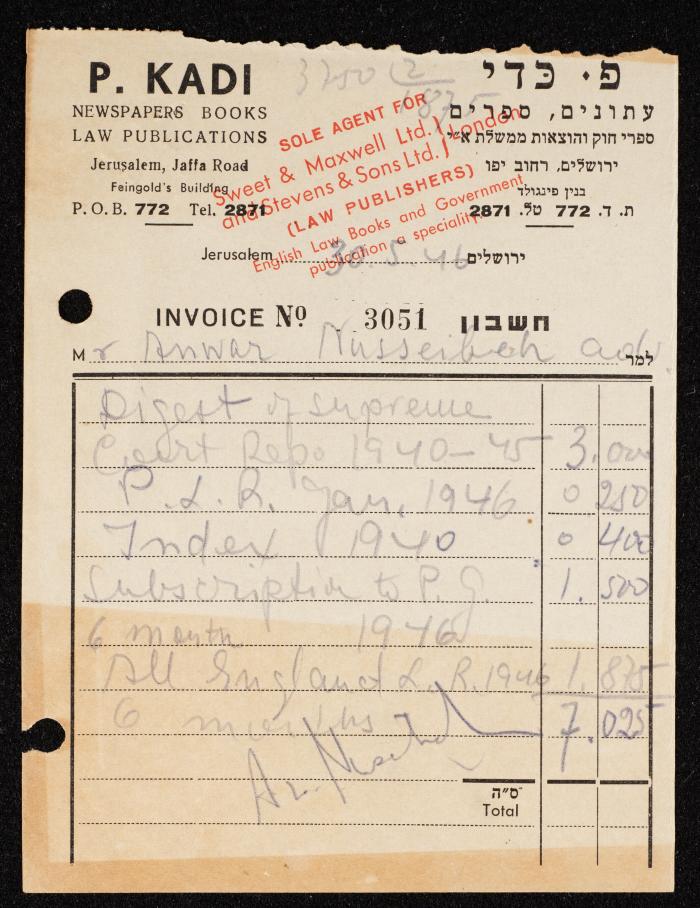 P. KADI
NEWSPAPERS BOOKS
LAW PUBLICATIONS
Jerusalem, Jaffa Road
Feingold's Building
P.O.B. 772 Tel. 2871
פ. כדי
עתונים, ספרים
ספרי חוק והוצאות ממשלת א"י
ירושלים, רחוב יפו
בנין פינגולד
ת. ד. 772 טל. 2871
3750 / 2
1875
SOLE AGENT FOR
Sweet & Maxwell Ltd.
and Stevens & Sons Ltd. } London
(LAW PUBLISHERS)
English Law Books and Government
publication a speciality
Jerusalem 30.5.46 ירושלים
INVOICE No 3051 חשבון
Mr Anwar Nusseibeh adv. למר
Digest of supreme
Court Rep. 1940-45 3.000
P.L.R. Jan. 1946 0 250
Index 1940 0 400
Subscription to P.G. 1.500
6 month 1946
All England L.R. 1946 1.875
6 months 7.025
ס"ה
Total